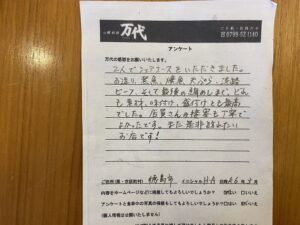 万代
☎0799-52-1180
アンケート
万代の感想をお願いいたします。
2人でシェアコースをいただきました。
お造り、煮魚、焼魚、天ぷら、淡路
ビーフ、そして最後の鯛めしまで、どれ
も素材、味付け、盛付けとも最高
でした。店員さんの接客も丁寧で
よかったです。また是非訪れたい
お店です!
ご住所(県・市区町村) 徳島市 イニシャル H.A
内容をホームページなどに掲載してもよろしいでしょうか? □はい □いいえ
アンケートと食事中の写真の掲載をしてもよろしいでしょうか? □はい □いいえ
(個人情報はお聞いたしません)